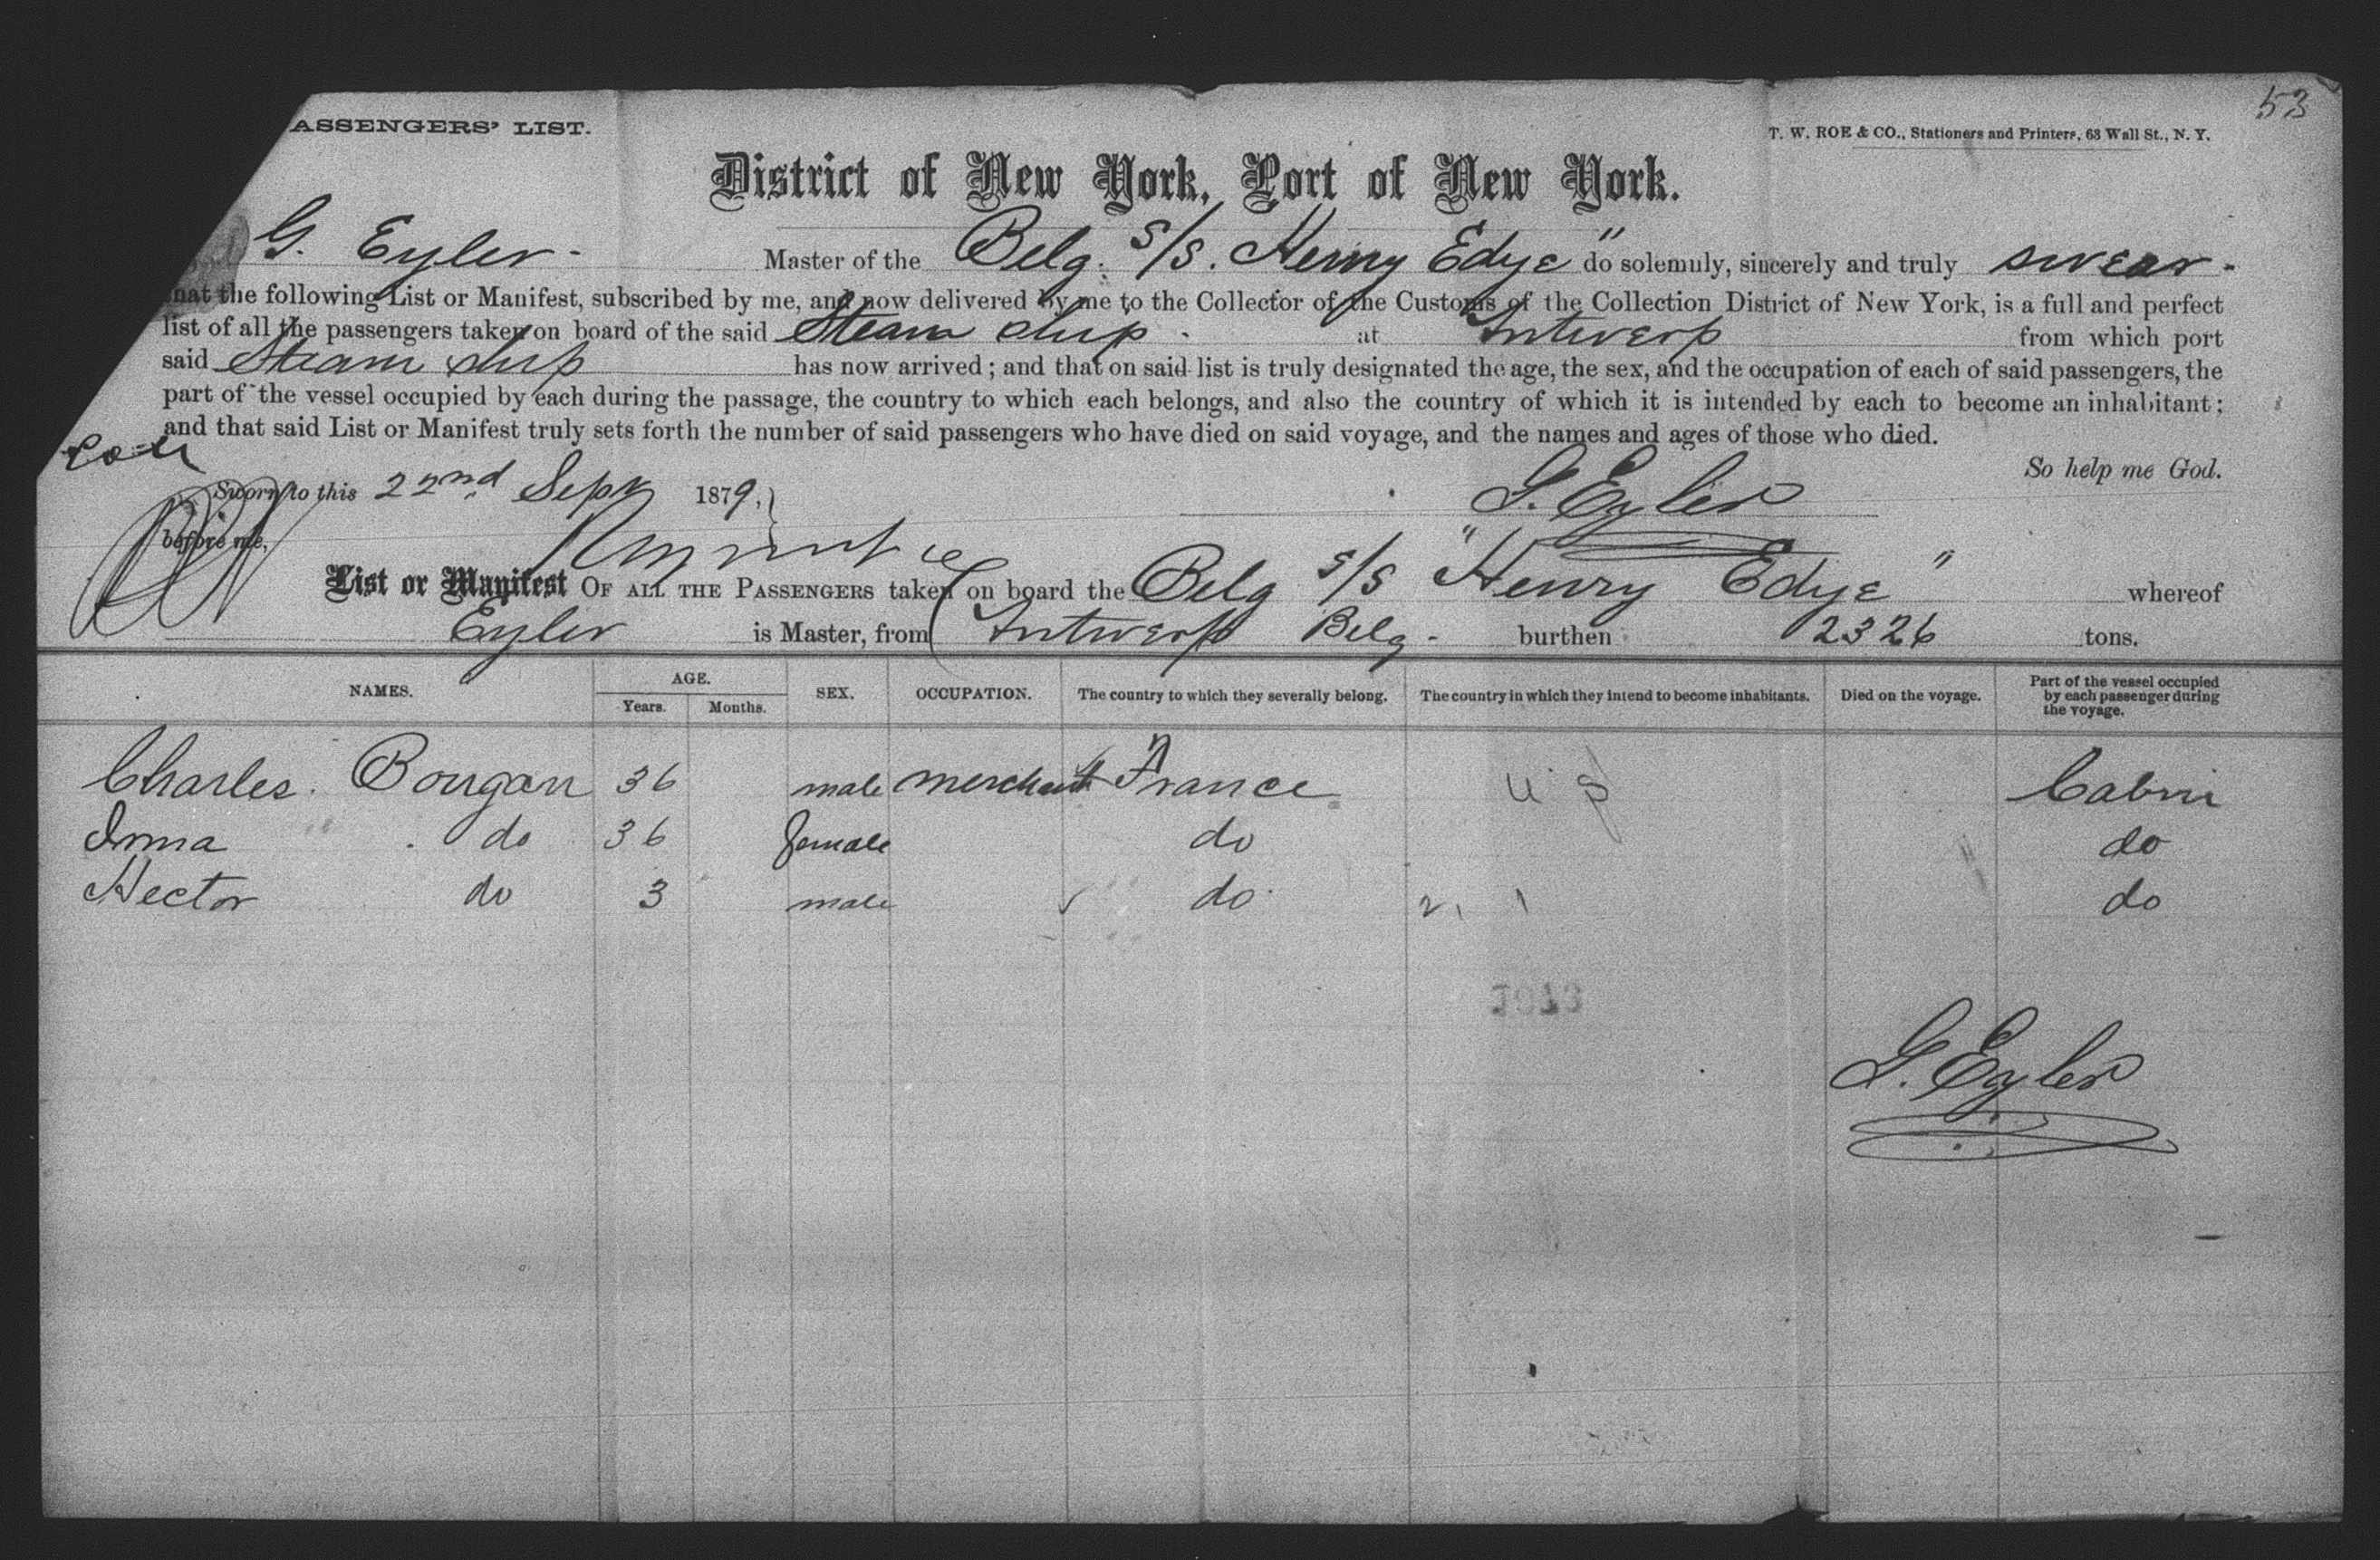 53
ASSENGERS' LIST.
T. W. ROE & CO., Stationers and Printers, 63 Wall St., N. Y.
District of New York, Port of New York.
G. Eyler - Master of the Belg. S/S. Henry Edye" do solemnly, sincerely and truly swear -
the following List or Manifest, subscribed by me, and now delivered by me to the Collector of the Customs of the Collection District of New York, is a full and perfect
list of all the passengers taken on board of the said Steam ship - at Antwerp from which port
said Steam ship has now arrived; and that on said list is truly designated the age, the sex, and the occupation of each of said passengers, the
part of the vessel occupied by each during the passage, the country to which each belongs, and also the country of which it is intended by each to become an inhabitant;
and that said List or Manifest truly sets forth the number of said passengers who have died on said voyage, and the names and ages of those who died.
So help me God.
Sworn to this 22nd Sept 1879,
G. Eyler
before me,
List or Manifest OF ALL THE PASSENGERS taken on board the Belg S/S "Henry Edye" whereof
Eyler is Master, from Antwerp Belg - burthen 2326 tons.
NAMES. AGE. Years. Months. SEX. OCCUPATION. The country to which they severally belong. The country in which they intend to become inhabitants. Died on the voyage. Part of the vessel occupied by each passenger during the voyage.
Charles Bougan 36 male merchant France U S Cabin
Irma do 36 female do do
Hector do 3 male do do
G. Eyler